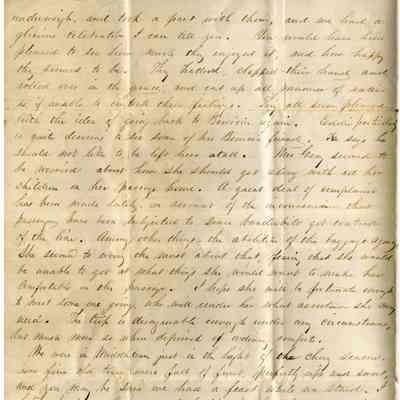 underweigh, and took a part with them, and we had a
glorious celebration I can tell you. You would have been
pleased to see how much they enjoyed it, and how happy
they seemed to be. They hallooed, clapped their hands and
rolled over in the grass, and cut up all manner of antics
as if unable to control their feelings. They all seem pleased
with the idea of going back to Benicia again.
is quite desirous to see some of his Benicia friends. He says he
should not like to be left here atall. Mrs Gray seemed to
be worried about how she should get along with all her
children on her passage home. A great deal of complaint
has been made lately, on account of the inconvenience that
passengers have been subjected to since Vanderbilt got control
of the line. Among other things, the abolition of the baggage
She seemed to worry the most about that, fearing that she would
be unable to get at what things she would want to make her
comfortable on the passage. I hope she will be fortunate enough
to meet some one going who will render her what assistance she may
need. The trip is disagreeable enough under any circumstances,
but much more so when deprived of ordinary comforts.
We were in just in the height of the cherry season.
some of the trees were full of fruit, perfectly ripe and sweet,
and you may be sure we had a feast while we staid. I